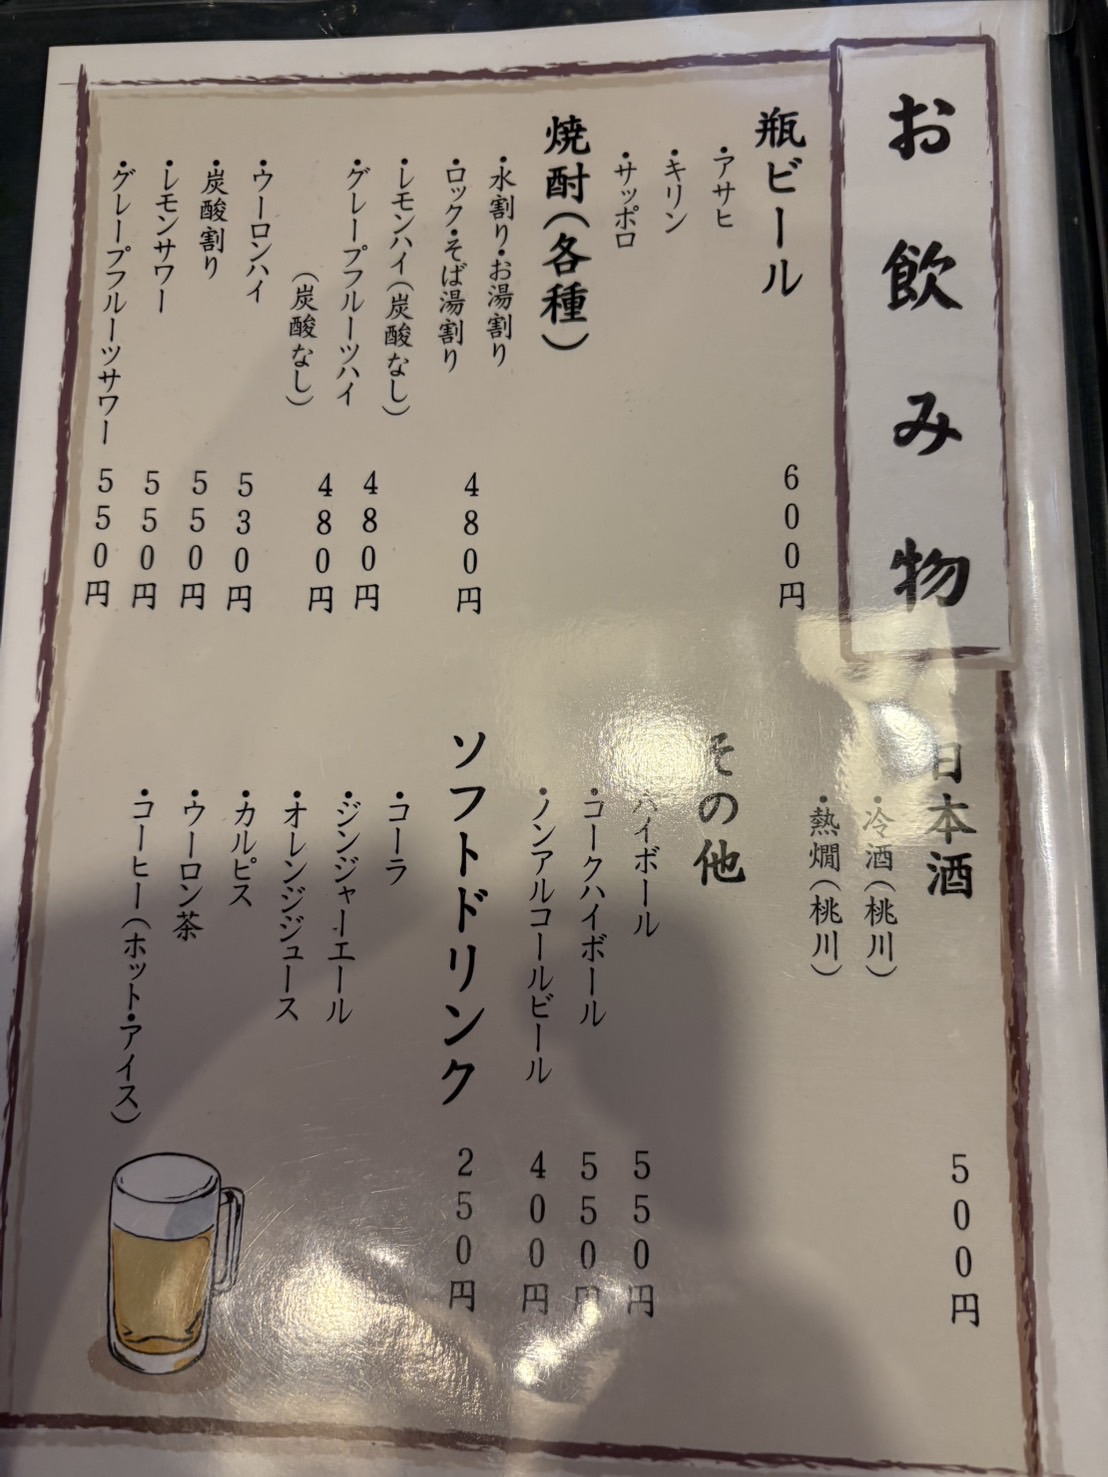 お飲み物
瓶ビール 600円
・アサヒ
・キリン
・サッポロ
焼酎（各種）
・水割り・お湯割り
・ロック・そば湯割り 480円
・レモンハイ（炭酸なし） 480円
・グレープフルーツハイ
（炭酸なし） 480円
・ウーロンハイ 530円
・炭酸割り 550円
・レモンサワー 550円
・グレープフルーツサワー 550円
日本酒 500円
・冷酒（桃川）
・熱燗（桃川）
その他
・ハイボール 550円
・コークハイボール 550円
・ノンアルコールビール 400円
ソフトドリンク 250円
・コーラ
・ジンジャーエール
・オレンジジュース
・カルピス
・ウーロン茶
・コーヒー（ホット・アイス）